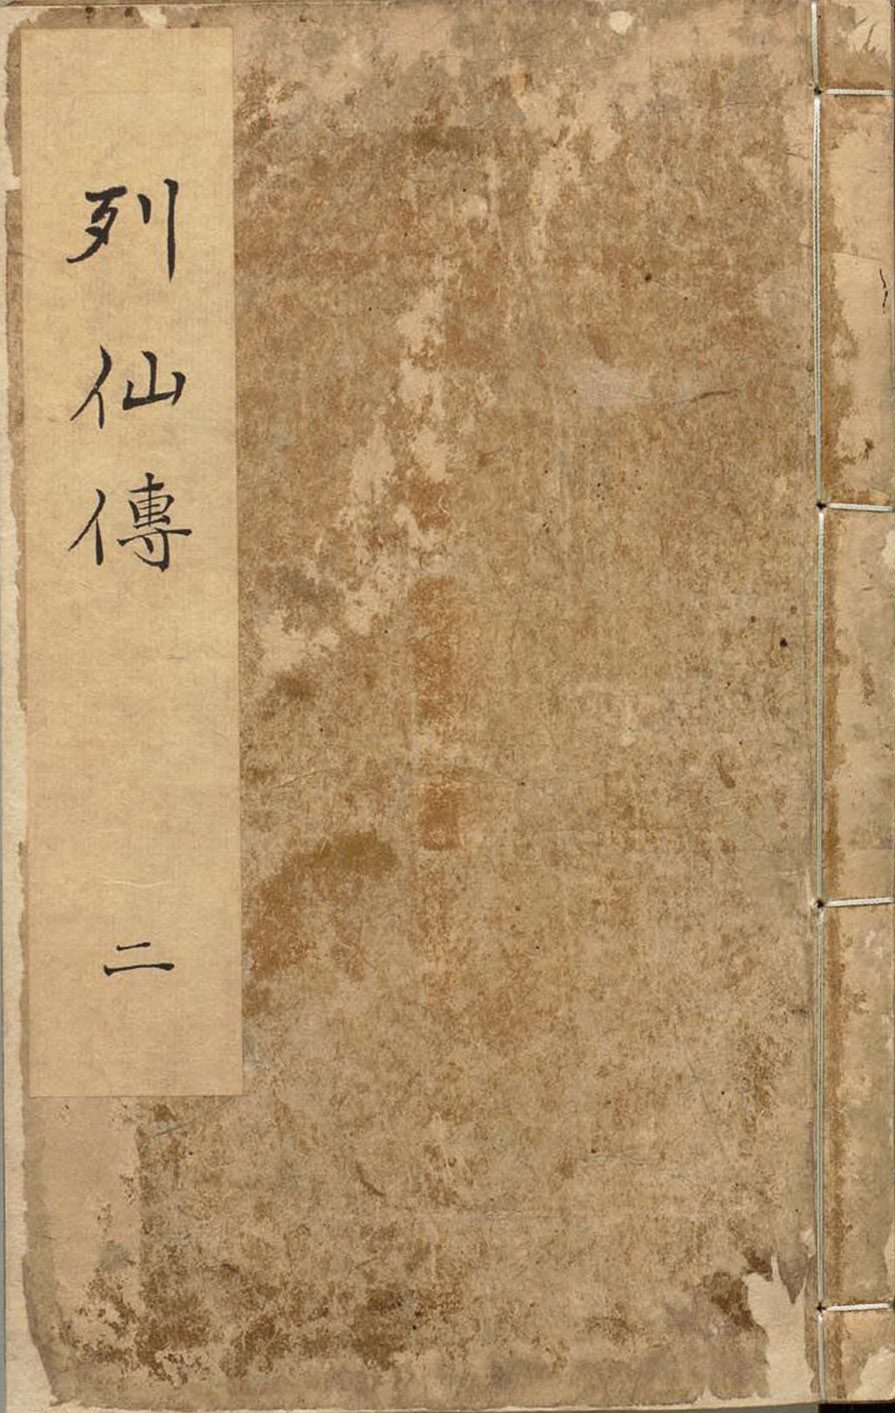 列仙傳
二